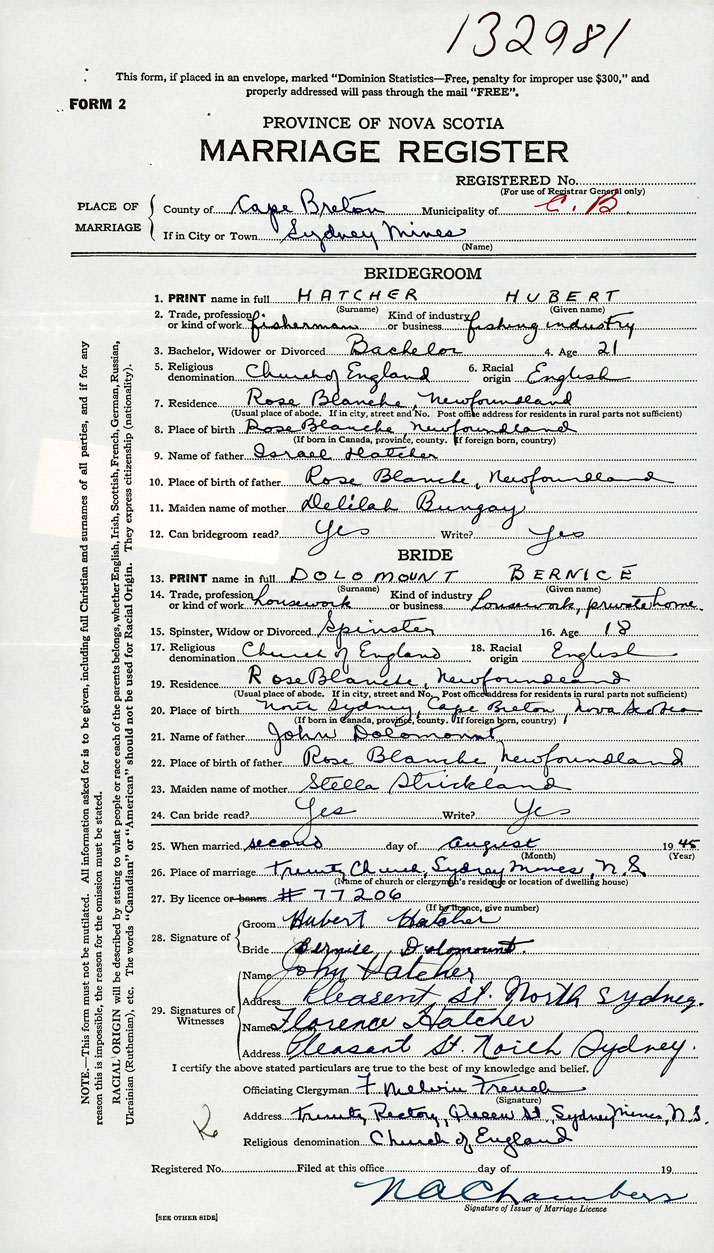 132981
This form, if placed in an envelope, marked "Dominion Statistics—Free, penalty for improper use $300," and
properly addressed will pass through the mail "FREE".
FORM 2
PROVINCE OF NOVA SCOTIA
MARRIAGE REGISTER
REGISTERED No.
(For use of Registrar General only)
PLACE OF MARRIAGE
County of Cape Breton Municipality of C. B.
If in City or Town Sydney Mines
(Name)
BRIDEGROOM
1. PRINT name in full HATCHER HUBERT
(Surname) (Given name)
2. Trade, profession or kind of work fisherman Kind of industry or business fishing industry
3. Bachelor, Widower or Divorced Bachelor 4. Age 21
5. Religious denomination Church of England 6. Racial origin English
7. Residence Rose Blanche, Newfoundland
(Usual place of abode. If in city, street and No. Post office address for residents in rural parts not sufficient)
8. Place of birth Rose Blanche, Newfoundland
(If born in Canada, province, county. If foreign born, country)
9. Name of father Israel Hatcher
10. Place of birth of father Rose Blanche, Newfoundland
11. Maiden name of mother Delilah Bungay
12. Can bridegroom read? Yes Write? Yes
BRIDE
13. PRINT name in full DOLOMOUNT BERNICE
(Surname) (Given name)
14. Trade, profession or kind of work housework Kind of industry or business housework, private home.
15. Spinster, Widow or Divorced Spinster 16. Age 18
17. Religious denomination Church of England 18. Racial origin English
19. Residence Rose Blanche, Newfoundland
(Usual place of abode. If in city, street and No. Post office address for residents in rural parts not sufficient)
20. Place of birth North Sydney, Cape Breton, Nova Scotia
(If born in Canada, province, county. If foreign born, country)
21. Name of father John Dolomount
22. Place of birth of father Rose Blanche, Newfoundland
23. Maiden name of mother Stella Strickland
24. Can bride read? Yes Write? Yes
25. When married second day of August 1945
(Month) (Year)
26. Place of marriage Trinity Church, Sydney Mines, N.S.
(Name of church or clergyman's residence or location of dwelling house)
27. By licence or banns # 77206
(If by licence, give number)
28. Signature of
Groom Hubert Hatcher
Bride Bernice Dolomount.
29. Signatures of Witnesses
Name John Hatcher
Address Pleasent St. North Sydney.
Name Florence Hatcher
Address Pleasant St. North Sydney.
I certify the above stated particulars are true to the best of my knowledge and belief.
Officiating Clergyman F. Melvin French
(Signature)
Address Trinity Rectory, Queen St., Sydney Mines, N.S.
Religious denomination Church of England
Registered No. Filed at this office day of 19
N A Chambers
Signature of Issuer of Marriage Licence
[SEE OTHER SIDE]
NOTE.—This form must not be mutilated. All information asked for is to be given, including full Christian and surnames of all parties, and if for any
reason this is impossible, the reason for the omission must be stated.
RACIAL ORIGIN will be described by stating to what people or race each of the parents belongs, whether English, Irish, Scottish, French, German, Russian,
Ukrainian (Ruthenian), etc. The words "Canadian" or "American" should not be used for Racial Origin. They express citizenship (nationality).